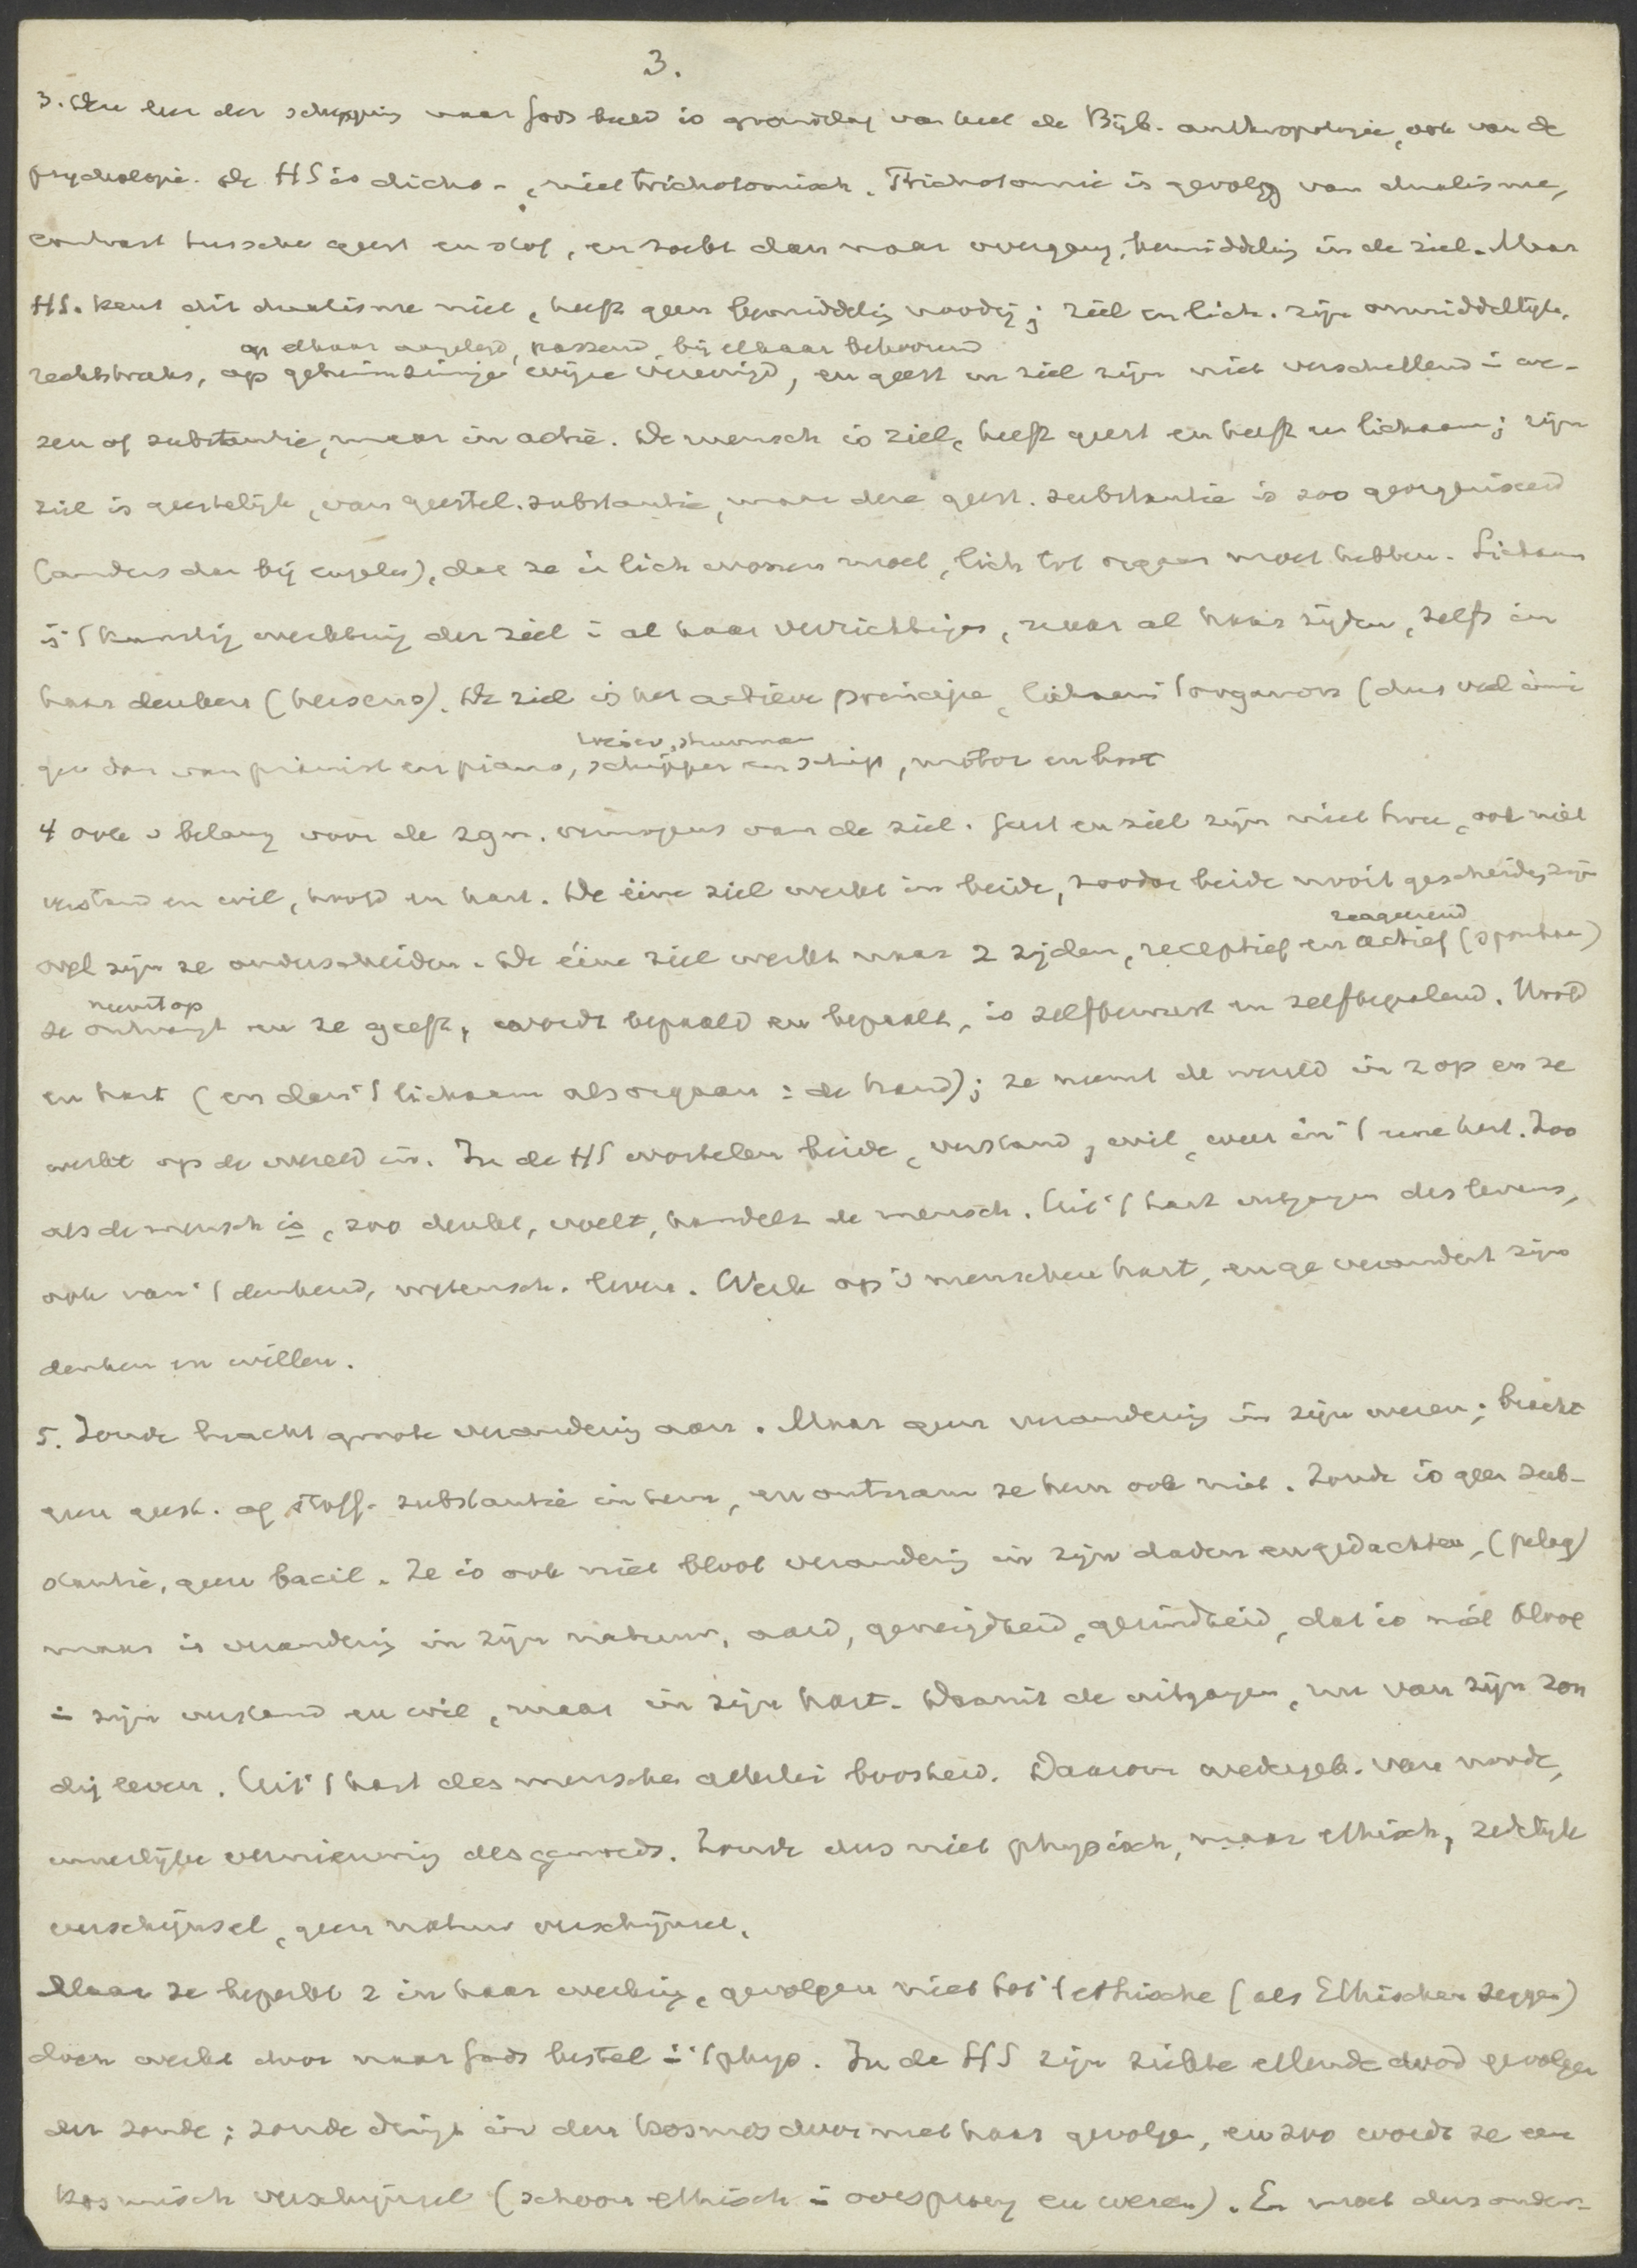 3.
3. Deze leer der schepping naar Gods beeld is grondslag van heel de Bijb. anthropologie, ook van de
psychologie. De HS is dicho-, niet trichotomisch. Trichotomie is gevolg van dualisme,
contrast tussche geest en stof, en zoekt dan naar overgang, bemiddelig in de ziel. Maar
HS. kent dit dualisme niet, heeft geen bemiddelig noodig; ziel en lich. zijn onmiddellijk,
op elkaar aangelegd, passend, bij elkaar behoorend
rechtstreeks, op geheimzinnige wijze vereenigd, en geest en ziel zijn niet verschillend i we-
zen of substantie, maar in actie. De mensch is ziel, heeft geest en heeft een lichaam; zijn
ziel is geestelijk, van geestel. substantie, maar deze geest. substantie is zoo georganiseerd
(anders dan bij engelen), dat ze i lich wonen moet, lich tot orgaan moet hebben. Lichaam
is 't kunstig werktuig der ziel i al haar verrichtingen, naar al haar zijden, zelfs in
haar denken (hersens). De ziel is het actieve principe, lichaam 't organon (dus veel inni
reiser, stuurman
ger dan van pianist en piano, schipper en schip, motor en boot
4 ook v belang voor de zgn. vermogens van de ziel. Geest en ziel zijn niet twee, ook niet
verstand en wil, hoofd en hart. De ééne ziel werkt in beide, zoodat beide nooit gescheiden zijn
reageerend
wel zijn ze onderscheiden. De ééne ziel werkt naar 2 zijden, receptief en actief (spontaan)
neemt op
ze ontvangt en ze geeft, wordt bepaald en bepaalt, is zelfbewust en zelfbepalend. Hoofd
en hart (en dan 't lichaam als orgaan: de hand); ze neemt de wereld in z op en ze
werkt op de wereld in. In de HS wortelen beide, verstand, wil, weer in 't eene hart. Zoo
als de mensch is, zoo denkt, voelt, handelt de mensch. Uit 't hart uitgangen des levens,
ook van 't denkend, wetensch. leven. Werk op 's menschen hart, en ge verandert zijn
denken en willen.
5. Zonde bracht groote verandering aan. Maar geen verandering in zijn wezen; bracht
geen geest. of stoff. substantie in hem, en ontnam ze hem ook niet. Zonde is geen sub-
stantie, geen bacil. Ze is ook niet bloot verandering in zijn daden en gedachten, (pelag)
maar is verandering in zijn natuur, aard, geneigdheid, gezindheid, dat is niet bloot
i zijn verstand en wil, maar in zijn hart. Daaruit de uitgangen, nu van zijn zon
dig leven. Uit 't hart des menschen allerlei boosheid. Daarom wedergeb. van noode,
innerlijke vernieuwing des gemoeds. Zonde dus niet physisch, maar ethisch, zedelijk
verschijnsel, geen natuur verschijnsel.
Maar ze beperkt z in haar werking, gevolgen niet tot 't ethische (als Ethischen zeggen)
doch werkt door naar Gods bestel i 't phys. In de HS zijn ziekte ellende dood gevolgen
der zonde; zonde dringt in den kosmos door met haar gevolgen, en zoo wordt ze een
kosmisch verschijnsel (schoon ethisch i oorsprong en wezen). En moet dus onder-